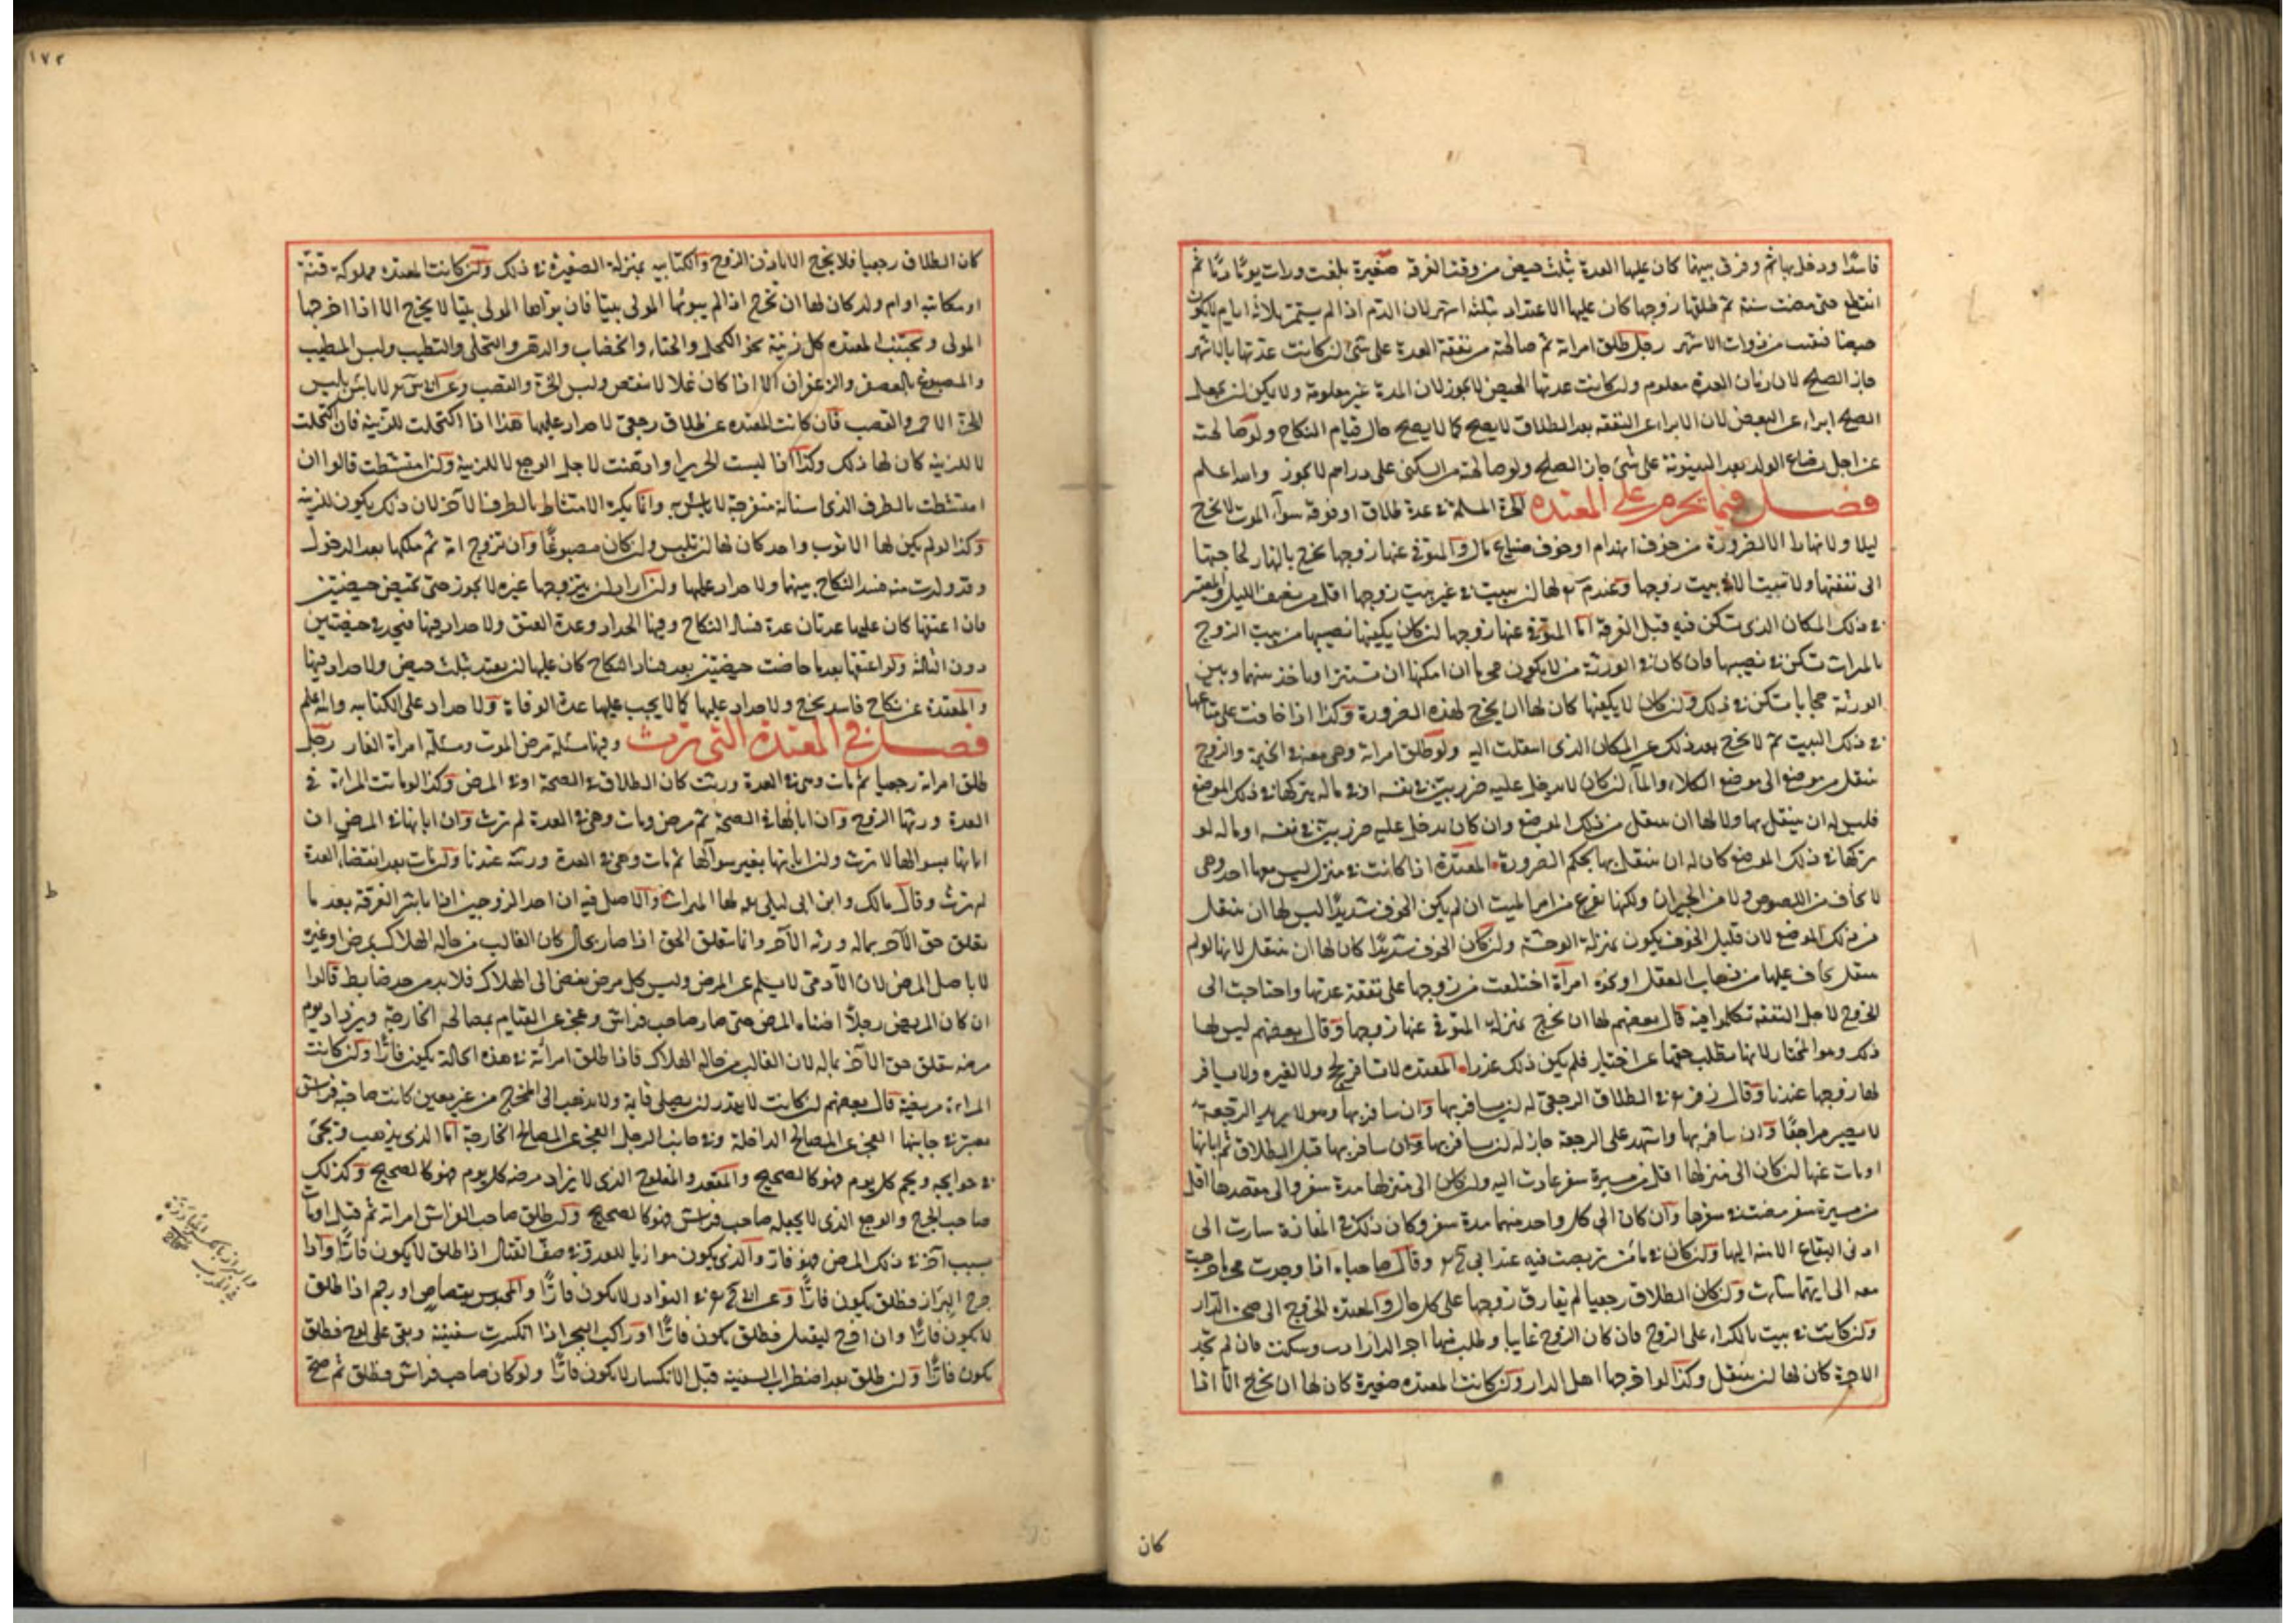 فاسدا ودخل بها ثم وفرق بينهما كان عليها العدة بثلث حيض من وقت الفرقة صغيرة بلغت ورات يوما دما ثم
انقطع حتى مضت سنة ثم طلقها زوجها كان عليها الاعتداد بثلثة اشهر لان الدم اذا لم يستمر ثلاثة ايام لا يكون
حيضا فبقيت من ذوات الاشهر رجل طلق امراته ثم صالحته من نفقة العدة على شئ ان كانت عدتها بالاشهر
جاز الصلح لان زمان العدة معلوم وان كانت عدتها الحيض لا يجوز لان المدة غير معلومة ولا يمكن ان يجعل
الصلح ابراء عن البعض لان الابراء عن النفقة بعد الطلاق لا يصح كما لا يصح حال قيام النكاح ولو صالحته
عن اجل رضاع الولد بعد البينونة على شئ جاز الصلح ولو صالحته من السكنى على دراهم لا يجوز والله اعلم
فصل فيما يحرم على المعتده الحرة المسلمة في عدة طلاق او فرقة سوآء الموت لا تخرج
ليلا ولا نهارا الا لضرورة من خوف انهدام او خوف ضياع مال والمتوفى عنها زوجها تخرج بالنهار لحاجتها
الى نفقتها ولا تبيت الا في بيت زوجها وعن لها ان تبيت في غير بيت زوجها اقل من نصف الليل والمعتبر
في ذلك المكان الذى تسكن فيه قبل الفرقة اما المتوفى عنها زوجها ان كان يكفيها نصيبها من بيت الزوج
بالميراث تسكن في نصيبها فان كان في الورثة من لا يكون محرما ان امكنها ان تستتر او تاخذ بينها وبين
الورثة حجابا تسكن في ذلك وان كان لا يكفيها كان لها ان تخرج لهذه الضرورة وكذا اذا خافت على متاعها
في ذلك البيت ثم لا تخرج بعد ذلك عن المكان الذى انتقلت اليه ولو طلق امراته وهى معه في الخيمة والزوج
ينتقل من موضع الى موضع الكلاء والماء ان كان لا يدخل عليه ضرر بين في نفسه او في ماله بتركها في ذلك الموضع
فليس له ان ينتقل بها ولا لها ان تنتقل من ذلك الموضع وان كان يدخل عليه ضرر بين في نفسه او ماله لو
تركها في ذلك الموضع كان له ان ينتقل بها بحكم الضرورة المعتدة اذا كانت في منزل ليس معها احد وهى
لا تخاف من اللصوص ولا من الجيران ولكنها تفزع من امر الميت ان لم يكن الخوف شديدا ليس لها ان تنتقل
من ذلك الموضع لان قليل الخوف يكون بمنزلة الوحشة وان كان الخوف شديدا كان لها ان تنتقل لانها لو لم
تنتقل يخاف عليها من ذهاب العقل او نحوه امرأة اختلعت من زوجها على نفقة عدتها واحتاجت الى
الخروج لاجل النفقة تكلموا فيه قال بعضهم لها ان تخرج بمنزلة المتوفى عنها زوجها وقال بعضهم ليس لها
ذلك وهو المختار لانها ابطلت حقها عن اختيار فلم يكن ذلك عذرا المعتده لا تسافر لحج ولا لغيره ولا يسافر
لها زوجها عندنا وقال زفر في الطلاق الرجعى له ان يسافر بها وان سافر بها وهو لا يريد الرجعة
لا يصير مراجعا وان سافر بها واشهد على الرجعة جاز له ان يسافر بها وان سافر بها قبل الطلاق ثم ابانها
او مات عنها ان كان الى منزلها اقل من مسيرة سفر عادت اليه وان كان الى منزلها مدة سفر والى مقصدها اقل
من مسيرة سفر مضت في سفرها وان كان الى كل واحد منهما مدة سفر وكان ذلك في المفازة سارت الى
ادنى البقاع الامنة اليها وان كان في مأمن تربصت فيه عند ابى وقال صاحباه اذا وجدت محرما خرجت
معه الى ايتهما شاءت وان كان الطلاق رجعيا لم تفارق زوجها على كل حال والمعتده الخروج الى صحن الدار
وان كانت في بيت بالكراء على الزوج فان كان الزوج غايبا وطلب منها اجر الدار ادت وسكنت فان لم تجد
الاجرة كان لها ان تنتقل وكذا لو اخرجها اهل الدار وان كانت المعتده صغيرة كان لها ان تخرج الا اذا
كان
١٧٢
كان الطلاق رجعيا فلا تخرج الا باذن الزوج والكتابيه بمنزلة الصغيرة في ذلك وان كانت المعتده مملوكة قنة
او مكاتبه او ام ولد كان لها ان تخرج اذا لم يبوئها المولى بيتا فان بوأها المولى بيتا لا تخرج الا اذا اخرجها
المولى وتجتنب المعتده كل زينة نحو الكحل والحناء والخضاب والدهن والتحلى والتطيب ولبس المطيب
والمصبوغ بالعصفر والزعفران الا اذا كان غسلا لا ينفض ولبس الخز والقصب وعن لا باس بلبس
الخز الاحمر والقصب فان كانت المعتده عن طلاق رجعى لا حداد عليها هذا اذا اكتحلت للزينة فان اكتحلت
لا للزينة كان لها ذلك وكذا اذا لبست الحرير او ادهنت لاجل الوجع لا للزينة وكذا امتشطت قالوا ان
امتشطت بالطرف الذى اسنانه منفرجة لا باس به وانما يكره الامتشاط بالطرف الآخر لان ذلك يكون للزينة
وكذا لو لم يكن لها الا ثوب واحد كان لها ان تلبس وان كان مصبوغا وان تزوج امة ثم ملكها بعد الدخول
وقد ولدت منه فسد النكاح بينهما ولا حداد عليها وان اراد ان يتزوجها غيره لا يجوز حتى تحيض حيضتين
فان اعتقها كان عليها عدتان عدة فساد النكاح وفيها الحداد وعدة العتق ولا حداد فيها فتحد في حيضتين
دون الثالثة ولو اعتقها بعد ما حاضت حيضتين بعد فساد النكاح كان عليها ان تعتد بثلث حيض ولا حداد فيها
والمعتدة عن نكاح فاسد تخرج ولا حداد عليها كما لا يجب عليها عدة الوفاة ولا حداد على الكتابيه والله اعلم
فصل في المعتدة التى ترث وفيها مسئلة مرض الموت ومسئلة امراة الفار رجل
طلق امراته رجعيا ثم مات وهى في العدة ورثت كان الطلاق في الصحة او في المرض وكذا لو ماتت المراة في
العدة ورثها الزوج وان ابانها في الصحة ثم مرض ومات وهى في العدة لم ترث وان ابانها في المرض ان
ابانها بسوالها لا ترث وان ابانها بغير سوالها ثم مات وهى في العدة ورثته عندنا وان مات بعد انقضاء العدة
لم ترث وقال مالك وابن ابى ليلى لها الميراث والاصل فيه ان احد الزوجين اذا باشر الفرقة بعد ما
تعلق حق الآخر بماله ورثه الآخر وانما يتعلق الحق اذا صار بحال كان الغالب من حاله الهلاك بمرض او غيره
لا باصل المرض لان الآدمى لا يسلم عن المرض وليس كل مرض يفضى الى الهلاك فلا بد من حد ضابط قالوا
ان كان المريض رجلا اضناه المرض حتى صار صاحب فراش وعجز عن القيام بمصالحه الخارجة ويزداد كل يوم
مرضه تعلق حق الآخر بماله لان الغالب من حاله الهلاك فاذا طلق امراته في هذه الحالة يكون فارا وان كانت
المراة مريضة قال بعضهم ان كانت لا تقدر ان تصلى قايمة ولا تذهب الى المخرج من غير معين كانت صاحبة فراش
يعتبر في جانبها العجز عن المصالح الداخلة وفي جانب الرجل العجز عن المصالح الخارجة اما الذى يذهب ويجئ
في حوايجه ويحم كل يوم فهو كالصحيح والمقعد والمفلوج الذى لا يزداد مرضه كل يوم فهو كالصحيح وكذلك
صاحب الجرح والوجع الذى لا يجعله صاحب فراش فهو كالصحيح وان طلق صاحب الفراش امراته ثم قتل او مات
بسبب آخر في ذلك المرض فهو فار والذى يكون موازيا للعدو في صف القتال اذا طلق لا يكون فارا واذا
خرج البراز فطلق يكون فارا وعن في النوادر لا يكون فارا والمحبوس بقصاص او رجم اذا طلق
لا يكون فارا وان اخرج ليقتل فطلق يكون فارا وراكب البحر اذا انكسرت سفينته وبقى على لوح فطلق
يكون فارا وان طلق بعد اضطراب السفينة قبل الانكسار لا يكون فارا ولو كان صاحب فراش فطلق ثم صح